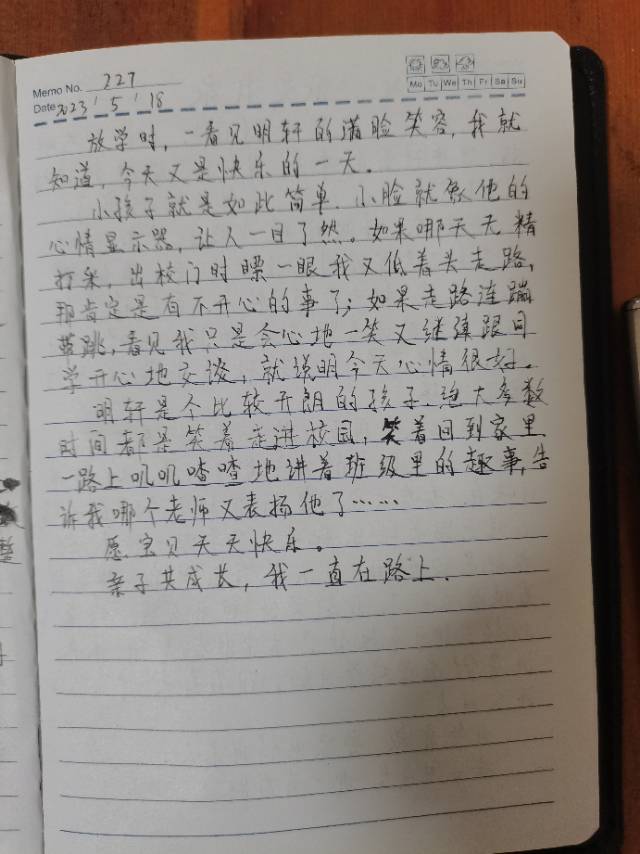 Memo No. 227
Mo Tu We Th Fr Sa Su
Date 2023 ' 5 ' 18
放学时，一看见明轩的满脸笑容，我就
知道，今天又是快乐的一天。
小孩子就是如此简单.小脸就象他的
心情显示器，让人一目了然。如果哪天无精
打采，出校门时瞟一眼我又低着头走路，
那肯定是有不开心的事了；如果走路连蹦
带跳，看见我只是会心地一笑又继续跟同
学开心地交谈，就说明今天心情很好。
明轩是个比较开朗的孩子.绝大多数
时间都是笑着走进校园，笑着回到家里
一路上叽叽喳喳地讲着班级里的趣事，告
诉我哪个老师又表扬他了……
愿宝贝天天快乐。
亲子共成长，我一直在路上.